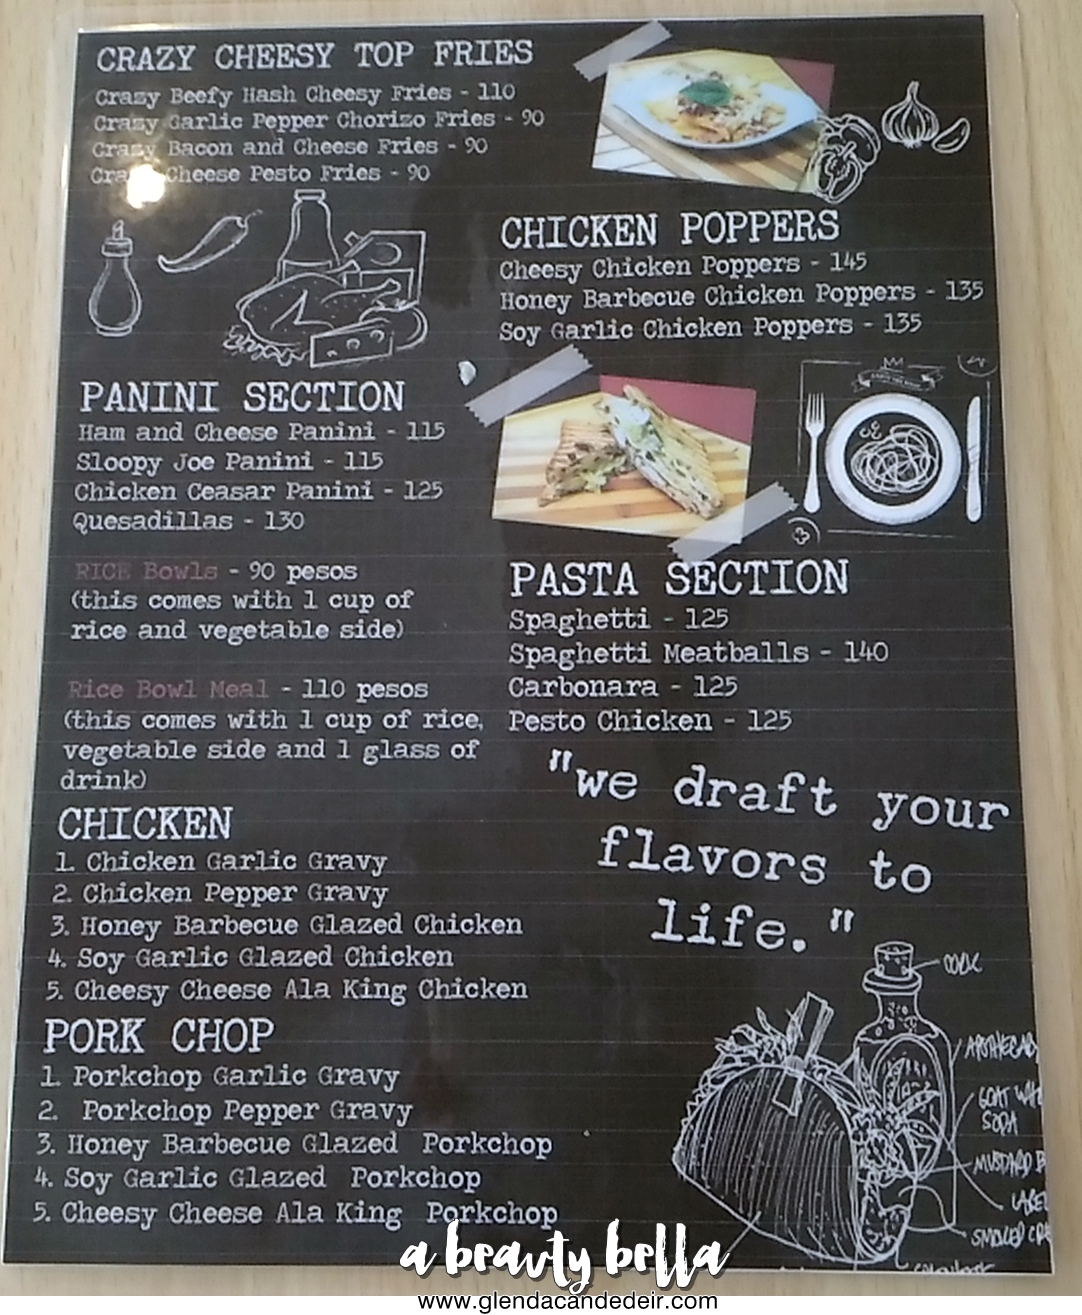 CRAZY CHEESY TOP FRIES
Crazy Beefy Hash Cheesy Fries - 110
Crazy Garlic Pepper Chorizo Fries - 90
Crazy Bacon and Cheese Fries - 90
Cheese Pesto Fries - 90
CHICKEN POPPERS
Cheesy Chicken Poppers - 145
Honey Barbecue Chicken Poppers - 135
Soy Garlic Chicken Poppers - 135
PANINI SECTION
Ham and Cheese Panini - 115
Sloopy Joe Panini - 115
Chicken Ceasar Panini - 125
Quesadillas - 130
RICE Bowls - 90 pesos
(this comes with 1 cup of
rice and vegetable side)
Rice Bowl Meal - 110 pesos
(this comes with 1 cup of rice,
vegetable side and 1 glass of
drink)
PASTA SECTION
Spaghetti - 125
Spaghetti Meatballs - 140
Carbonara - 125
Pesto Chicken - 125
"we draft your
flavors to
life."
CHICKEN
1. Chicken Garlic Gravy
2. Chicken Pepper Gravy
3. Honey Barbecue Glazed Chicken
4. Soy Garlic Glazed Chicken
5. Cheesy Cheese Ala King Chicken
PORK CHOP
1. Porkchop Garlic Gravy
2. Porkchop Pepper Gravy
3. Honey Barbecue Glazed Porkchop
4. Soy Garlic Glazed Porkchop
5. Cheesy Cheese Ala King Porkchop
SODA
MUSTARD
a beauty bella
www.glendacandedeir.com